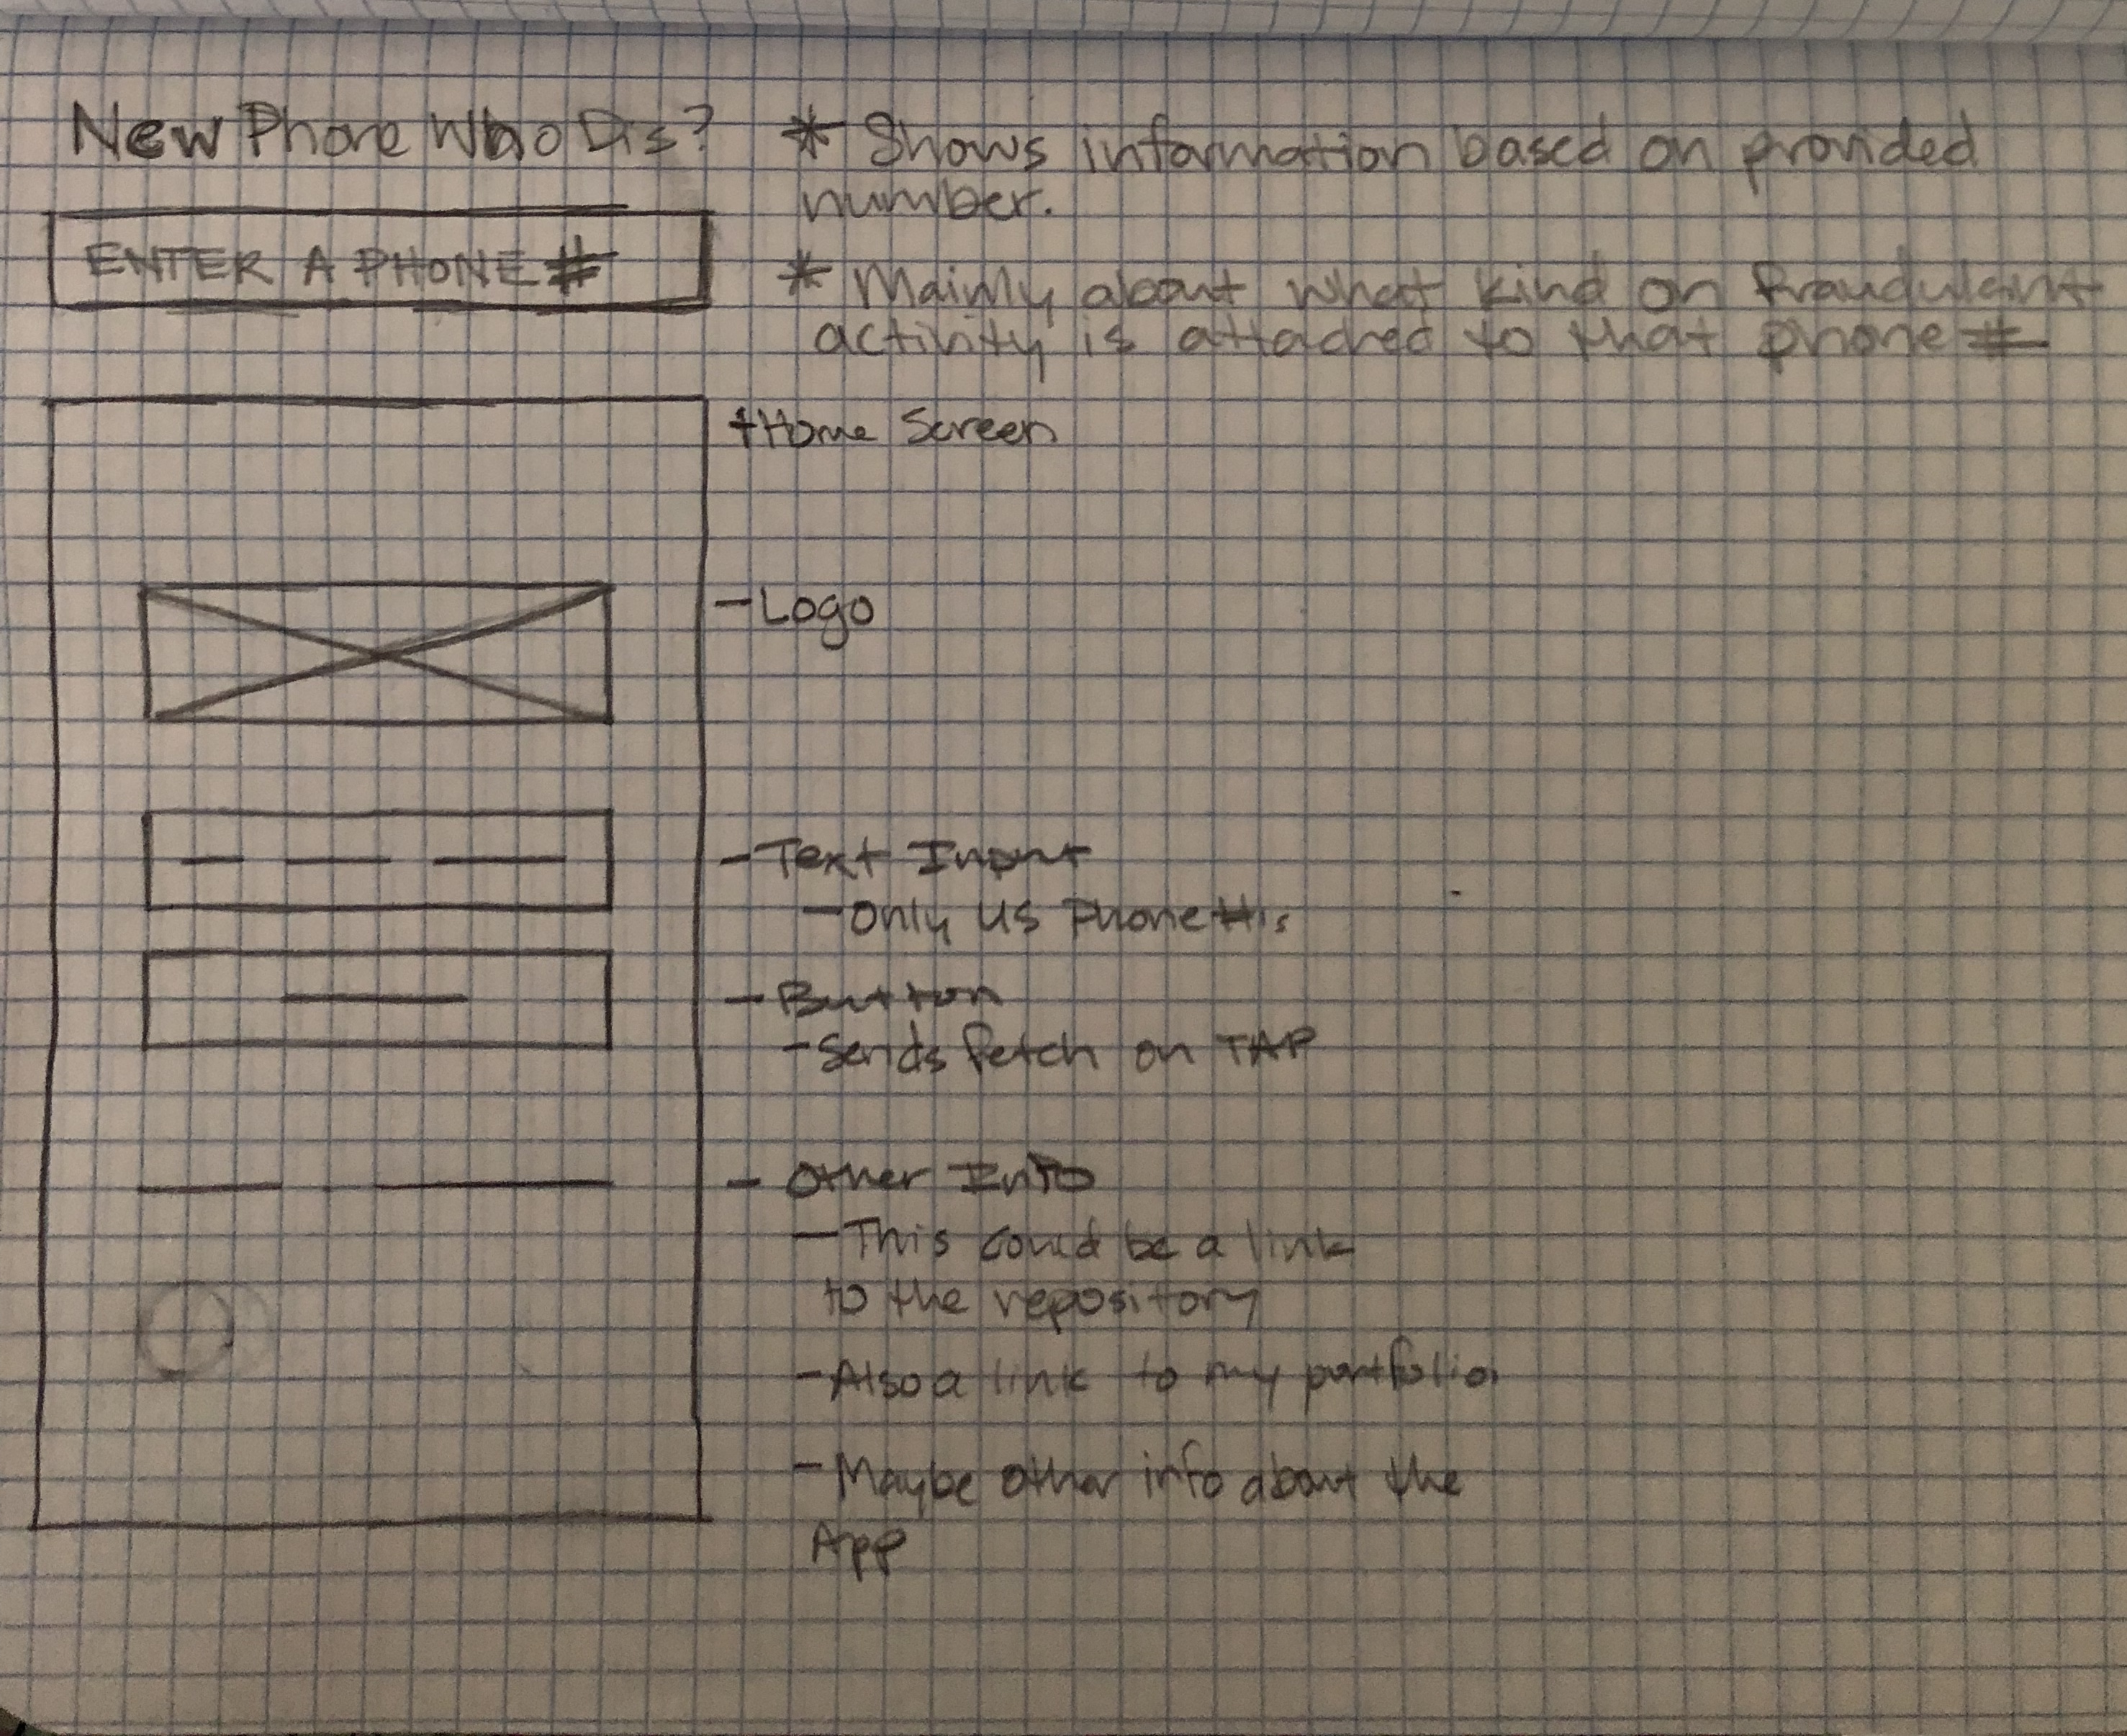 New Phone Who Dis?
ENTER A PHONE #
* Shows information based on provided
number.
* Mainly about what kind on fraudulent
activity is attached to that phone #
+Home Screen
-Logo
-Text Input
-Only US Phone #'s
-Button
-Sends fetch on TAP
- Other Info
-This could be a link
to the repository
-Also a link to my portfolio.
-Maybe other info about the
App